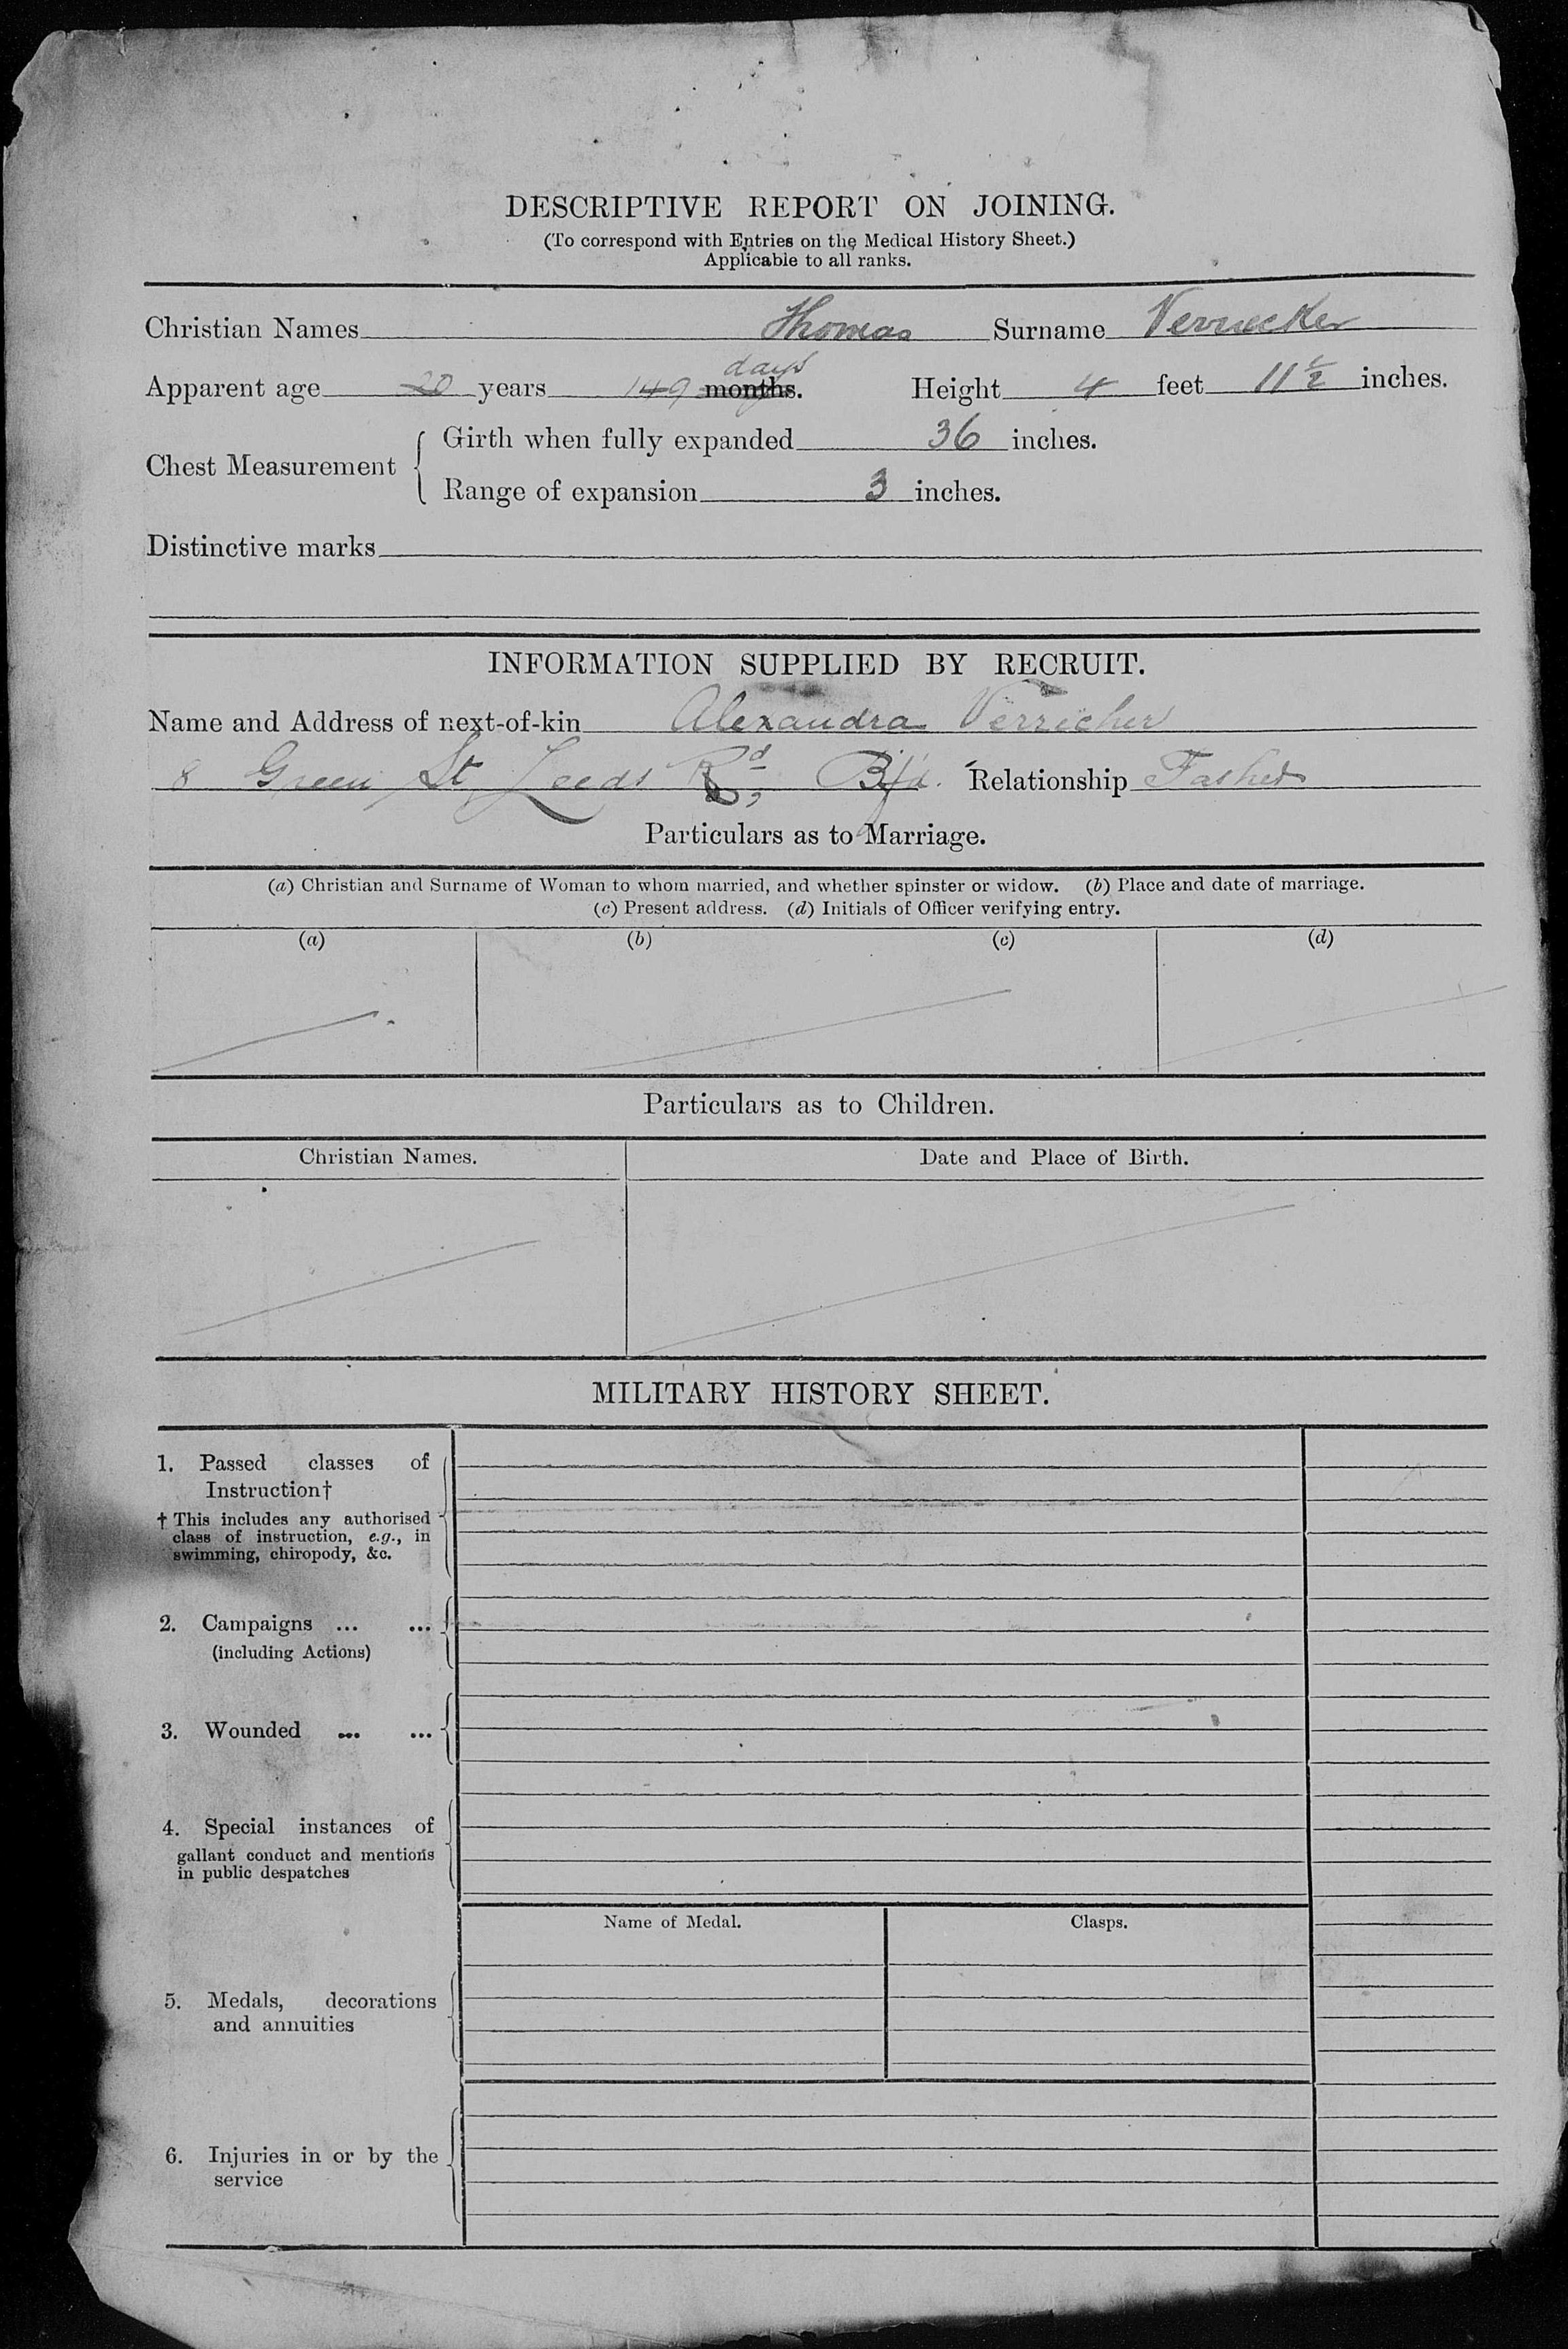 DESCRIPTIVE REPORT ON JOINING.
(To correspond with Entries on the Medical History Sheet.)
Applicable to all ranks.
Christian Names Thomas Surname Vernecker
Apparent age 20 years 149 days months. Height 4 feet 11 1/2 inches.
Chest Measurement
Girth when fully expanded 36 inches.
Range of expansion 3 inches.
Distinctive marks
INFORMATION SUPPLIED BY RECRUIT.
Name and Address of next-of-kin Alexandra
8 Green St Leeds Rd, Bfd. Relationship Father
Particulars as to Marriage.
(a) Christian and Surname of Woman to whom married, and whether spinster or widow. (b) Place and date of marriage.
(c) Present address. (d) Initials of Officer verifying entry.
(a) (b) (c) (d)
Particulars as to Children.
Christian Names. Date and Place of Birth.
MILITARY HISTORY SHEET.
1. Passed classes of
Instruction†
† This includes any authorised
class of instruction, e.g., in
swimming, chiropody, &c.
2. Campaigns ... ...
(including Actions)
3. Wounded ... ...
4. Special instances of
gallant conduct and mentions
in public despatches
Name of Medal. Clasps.
5. Medals, decorations
and annuities
6. Injuries in or by the
service